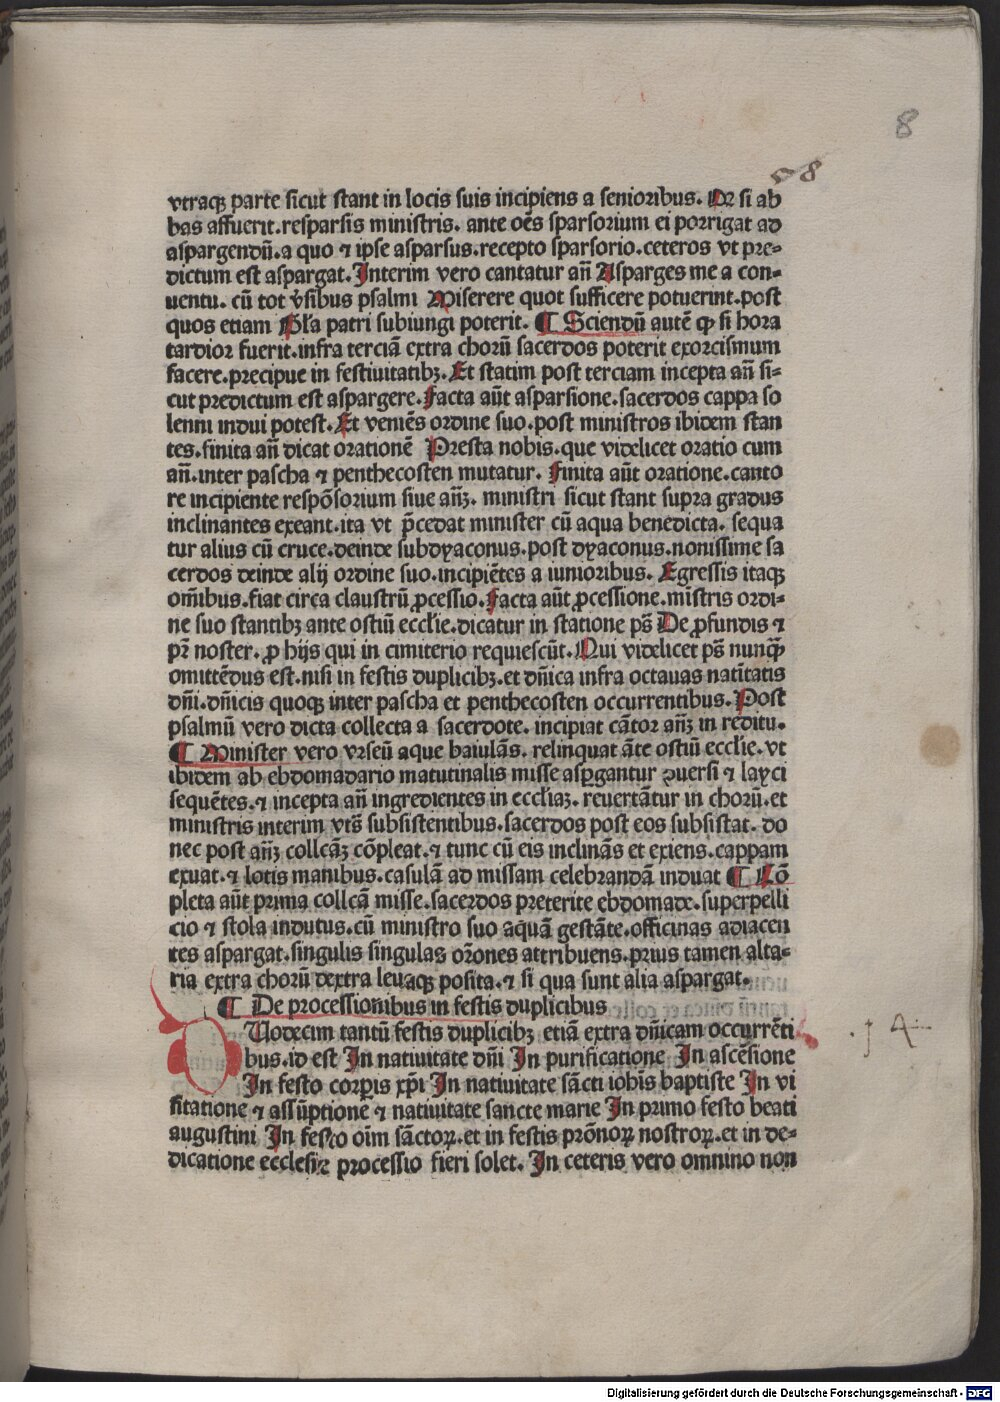 8
58
vtraqꝫ parte sicut stant in locis suis incipiens a senioribus. Qꝛ si ab
bas affuerit.resparsis ministris. ante oēs sparsorium ei porrigat ad
aspargendū.a quo ⁊ ipse asparsus.recepto sparsorio.ceteros vt pre-
dictum est aspargat. Interim vero cantatur an̄ Asparges me a con-
uentu. cū tot v̾sibus psalmi Miserere quot sufficere potuerint.post
quos etiam Gl̄a patri subiungi poterit. ¶ Sciendū autē ꝙ si hora
tardior fuerit.infra terciā extra chorū sacerdos poterit exorcismum
facere.precipue in festiuitatibꝫ. Et statim post terciam incepta an̄ si-
cut predictum est aspargere. Facta aūt asparsione.sacerdos cappa so
lenni indui potest. Et veniēs ordine suo.post ministros ibidem stan
tes.finita an̄ dicat orationē Presta nobis.que videlicet oratio cum
an̄.inter pascha ⁊ penthecosten mutatur. Finita aūt oratione.canto
re incipiente respōsorium siue an̄ꝫ. ministri sicut stant supra gradus
inclinantes exeant.ita vt p̄cedat minister cū aqua benedicta. sequa
tur alius cū cruce.deinde subdyaconus.post dyaconus.nonissime sa
cerdos deinde alij ordine suo.incipiētes a iunioribus. Egressis itaqꝫ
om̄ibus.fiat circa claustrū ꝓcessio. Facta aūt ꝓcessione.mīstris ordi-
ne suo stantibꝫ ante ostiū eccl̄ie.dicatur in statione ps̄ De ꝓfundis ⁊
pr̄ noster. ꝓ hijs qui in cimiterio requiescūt. Qui videlicet ps̄ nunqꝫ̄
omittēdus est.nisi in festis duplicibꝫ.et dn̄ica infra octauas natītatis
dn̄i.dn̄icis quoqꝫ inter pascha et penthecosten occurrentibus. Post
psalmū vero dicta collecta a sacerdote. incipiat cātor an̄ꝫ in reditu.
¶ Minister vero vrseū aque baiulās. relinquat āte ostiū eccl̄ie. vt
ibidem ab ebdomadario matutinalis misse asꝑgantur ꝯuersi ⁊ layci
sequētes.⁊ incepta an̄ ingredientes in eccl̄iaꝫ. reuertātur in chorū.et
ministris interim vts̄ subsistentibus.sacerdos post eos subsistat. do
nec post an̄ꝫ collcāꝫ cōpleat.⁊ tunc cū eis inclinās et exiens.cappam
exuat.⁊ lotis manibus.casulā ad missam celebrandā induat ¶ Cō
pleta aūt prima collcā misse.sacerdos preterite ebdomade.superpelli
cio ⁊ stola indutus.cū ministro suo aquā gestāte.officinas adiacen
tes aspargat.singulis singulas or̄ones attribuens.prius tamen alta-
ria extra chorū dextra leuaqꝫ posita.⁊ si qua sunt alia aspargat.
¶ De processionibus in festis duplicibus
Uodecim tantū festis duplicibꝫ etiā extra dn̄icam occurrēti
bus.id est In natiuitate dn̄i In purificatione In ascēsione
In festo corꝑis xp̄i In natiuitate sācti ioh̄is baptiste In vi
sitatione ⁊ assūptione ⁊ natiuitate sancte marie In primo festo beati
augustini In festo oīm sāctoꝝ.et in festis prōnoꝝ nostroꝝ.et in de-
dicatione ecclesie processio fieri solet. In ceteris vero omnino non
Digitalisierung gefördert durch die Deutsche Forschungsgemeinschaft - DFG